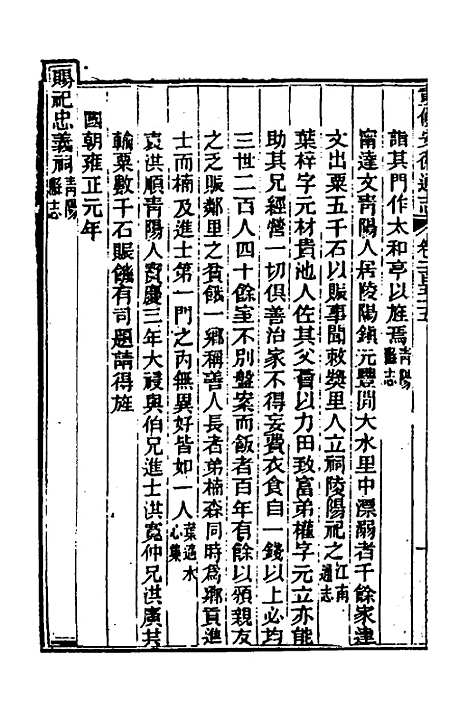 重修安徽通志
詣其門作太和亭以旌焉青陽縣志
甯達文青陽人居陵陽鎮元豐閒大水里中漂溺者千餘家達
文出粟五千石以賑事聞敕獎里人立祠陵陽祀之江南通志
葉梓字元材貴池人佐其父嘗以力田致富弟權字元立亦能
助其兄經營一切俱善治家不得妄費衣食自一錢以上必均
三世二百人四十餘室不別盤案而飯者百年有餘以頒親友
之乏賑鄰里之貧餓一鄉稱善人長者弟楠森同時爲鄉貢進
士而楠及進士第一門之內無異好皆如一人葉適水心集
袁洪順青陽人寶慶三年大祲與伯兄進士洪寬仲兄洪廣共
輸粟數千石賑饑有司題請得旌
國朝雍正元年
賜祀忠義祠青陽縣志